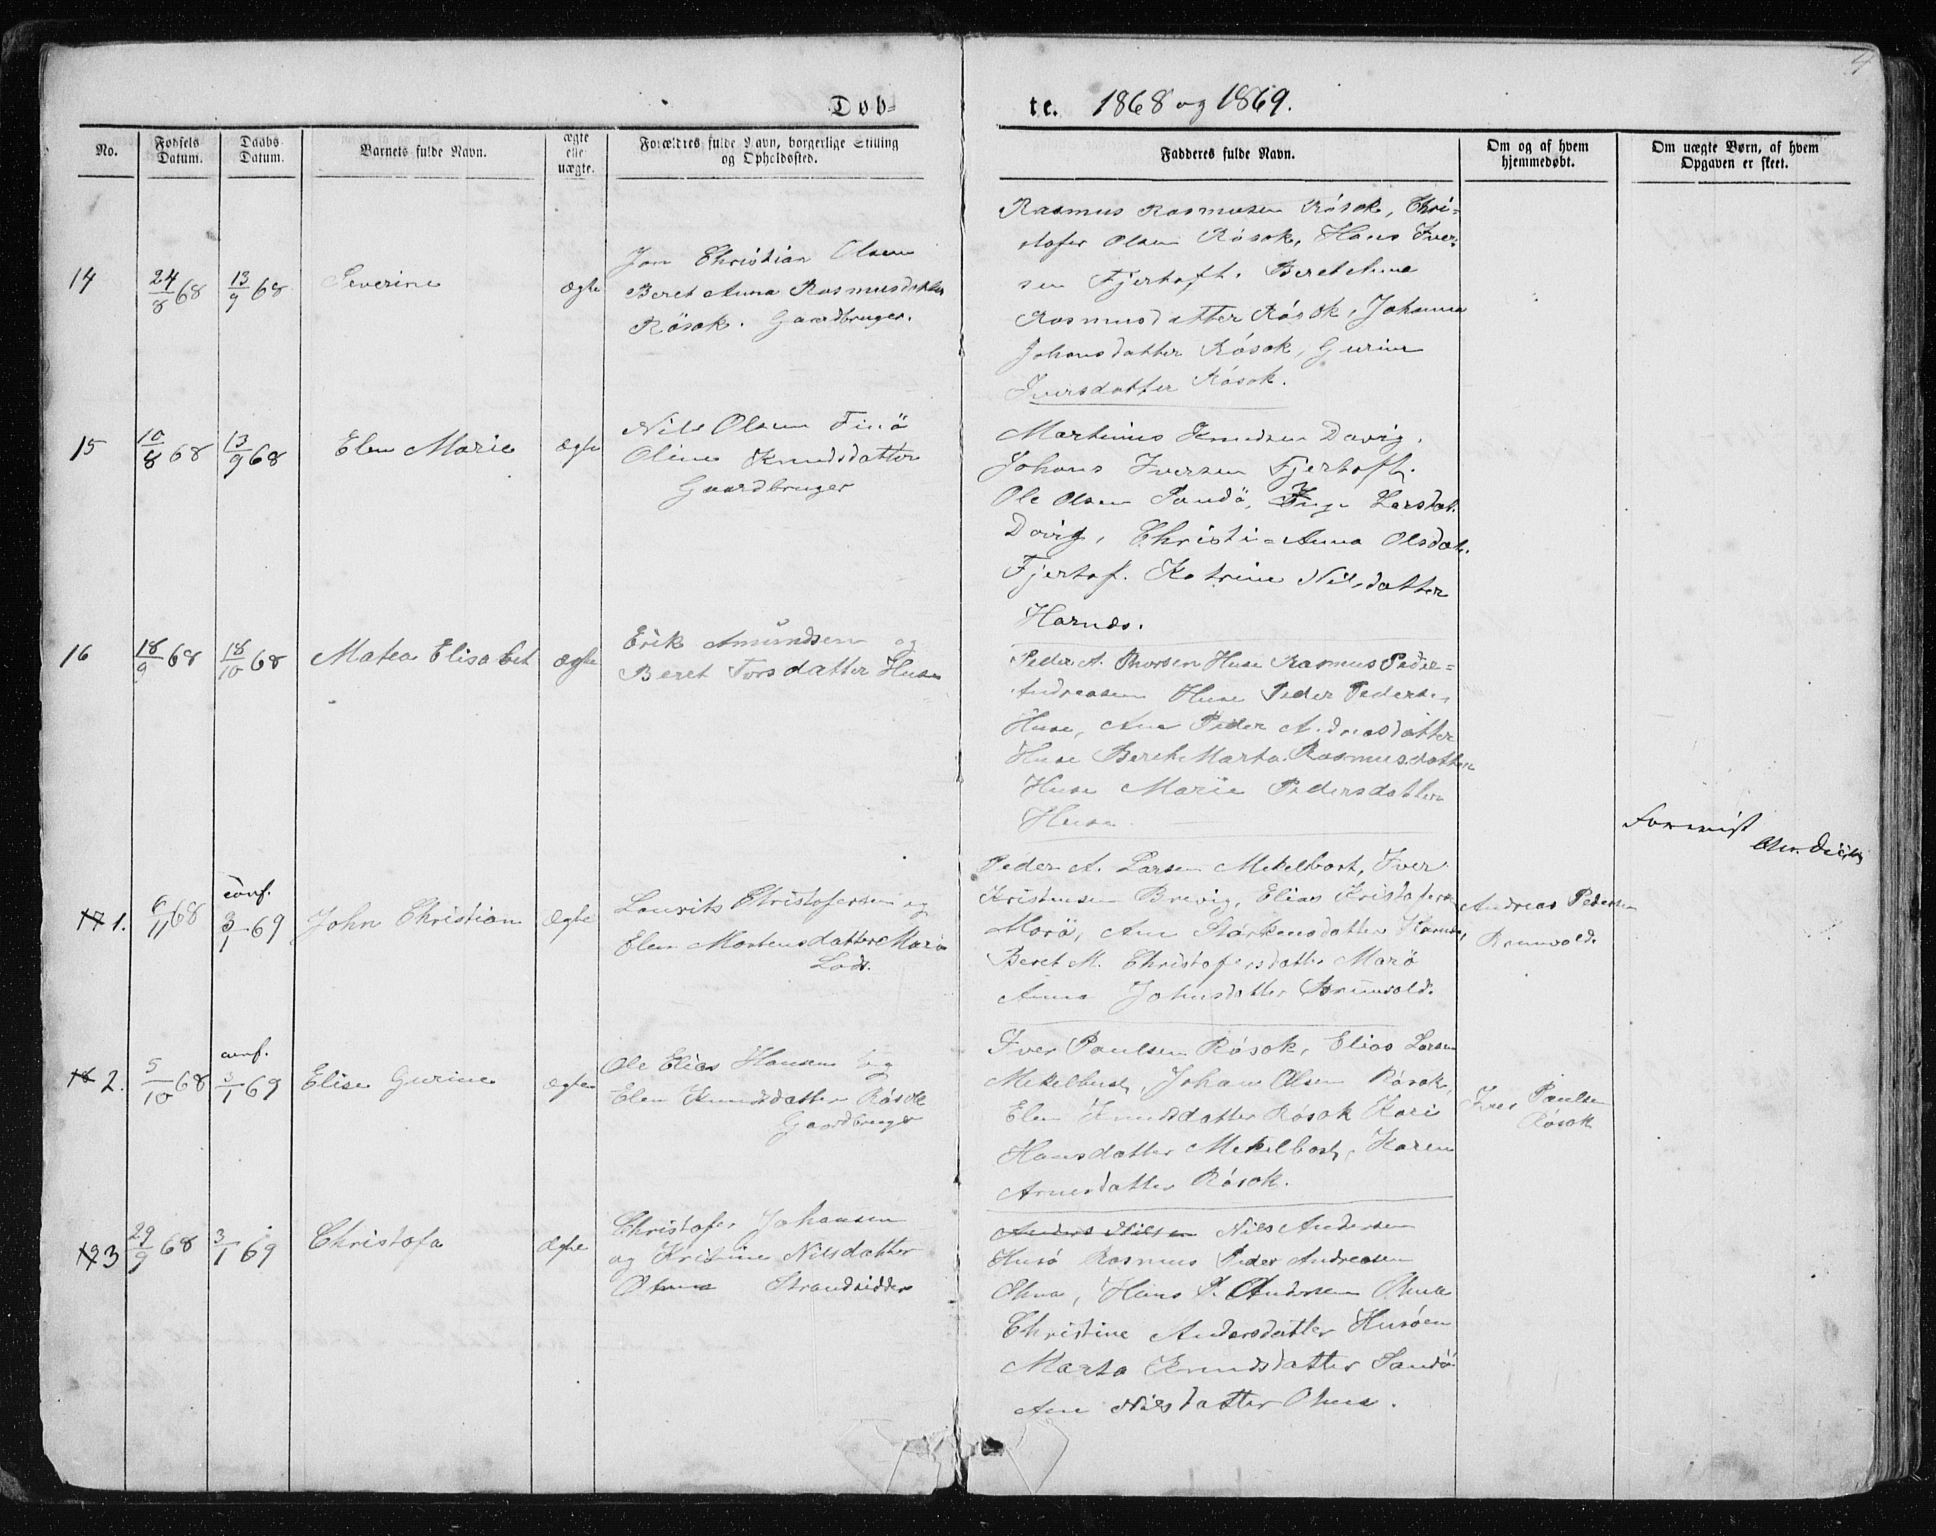 4
Døb=
te. 1868 og 1869.
No.
Fødsels Datum.
Daabs Datum.
Barnets fulde Navn.
ægte elle uægte.
Forældres fulde Navn, borgerlige Stilling og Opholdsted.
Fadderes fulde Navn.
Om og af hvem hjemmedøbt.
Om uægte Børn, af hvem Opgaven er skeet.
14
24/8 68
13/9 68
Severine
Ægte
Jon Christian Olsen
Beret Anna Rasmusdatter
Røsok. Gaardbruger.
Rasmus Rasmusen Røsok, Chri=
stofer Olsen Røsok, Hans Iver=
sen Fjertoft. Beret Anne
Rasmusdatter Røsok, Johanna
Johansdatter Røsok, Gurine
Iversdatter Røsok.
15
10/8 68
13/9 68
Elen Marie
Ægte
Nils Olsen Finö
Oline Knudsdatter
Gaardbruger
Martinus Knudsen Davig.
Johans Iversen Fjertoft.
Ole Olsen Sandö, Inge Larsdat.
Davig, Christi=Anna Olsdat.
Fjertof. Katrine Nilsdatter
Harnes.
16
18/9 68
18/10 68
Matea Elisabet
Ægte
Erik Amundsen og
Beret Torsdatter Huse
Peder A. Thorsen Huse Rasmus Peder=
Andreasen Huse Peder Pederse,
Huse, Ane Peder Andreasdatter
Huse Beret Marta Rasmusdatter
Huse Marie Pedersdatter
Huse
Forevist
17 1.
6/11 68
conf.
3/1 69
John Christian
Ægte
Laurits Christofersen og
Elen Mortensdatter Marö
Lods.
Peder A. Larsen Mekelbost, Iver
Kristensen Brevig, Elias Kristofers
Morö, Ane Starkensdatter
Beret M. Christofersdatter Marö
Anna Johnsdatter Brunvold.
Andreas Pedersen
Brunvold.
18 2.
5/10 68
conf.
3/1 69
Elise Gurine
Ægte
Ole Elias Hansen og
Elen Knudsdatter Røsok
Gaardbruger
Iver Paulsen Røsok, Elias Larsen
Mekelbust, Johan Olsen Røsok,
Elen Knudsdatter Røsok Kari
Hansdatter Mekelbost, Karen
Arnesdatter Røsok.
Iver Paulsen
Røsok
19 3
29/9 68
3/1 69
Christofa
Ægte
Christofer Johansen
og Kristine Nilsdatter
Ohna Strandsidder
Anders Nilsen Nils Andersen
Husö Rasmus Peder Andreasen
Ohna, Hans P. Andersen Ohna
Christine Andersdatter Husöen
Marta Knudsdatter Sandö
Ane Nilsdatter Ohna.